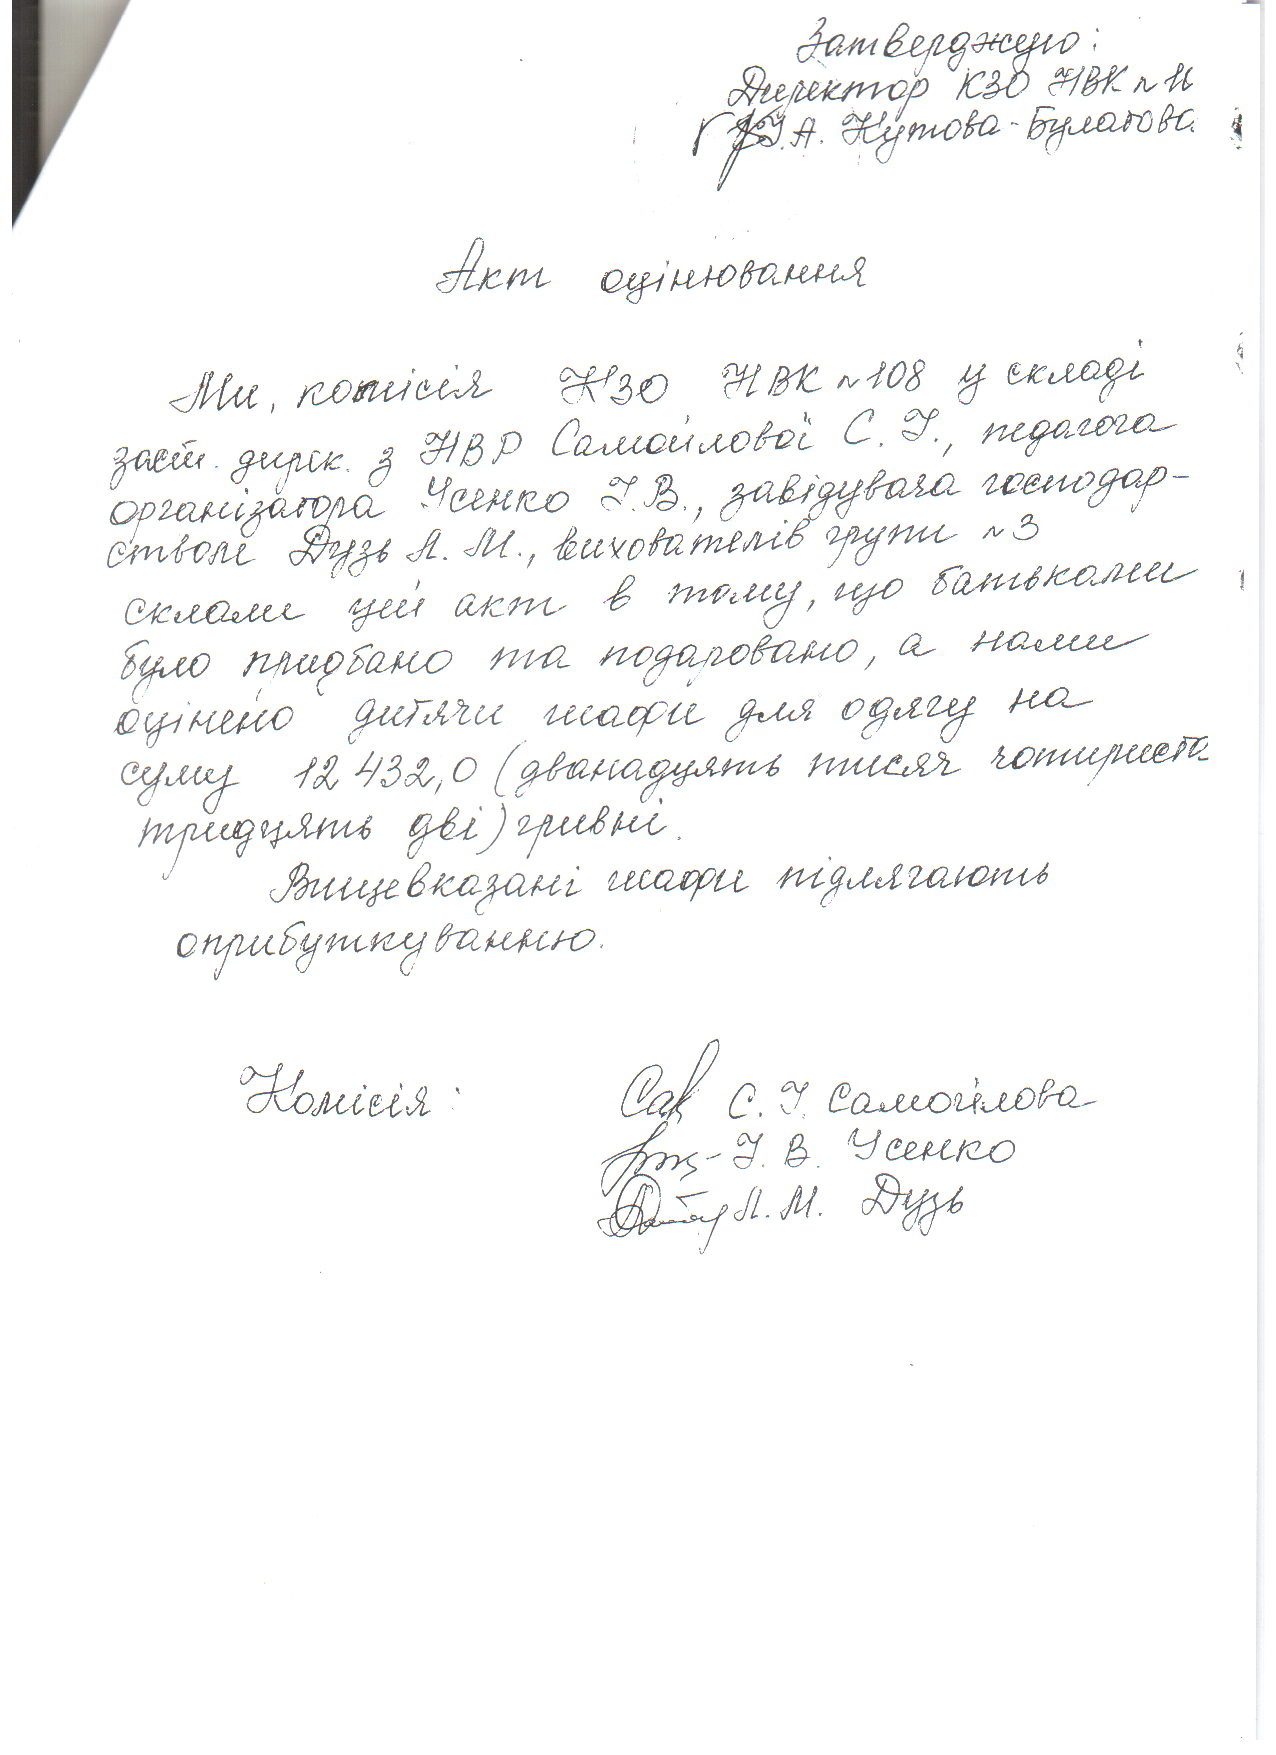 Затверджую:
Директор КЗО НВК № 11
І.А. Кутова-Булатова
Акт оцінювання
Ми, комісія КЗО НВК №108 у складі
заст. дирек. з НВР Самойлової С. І., педагога
організатора Усенко І.В., завідувача господар-
ством Дузь Л. М., вихователів групи №3
склали цей акт в тому, що батьками
було придбано та подаровано, а нами
оцінено дитячи шафи для одягу на
суму 12 432,0 (дванадцять тисяч чотириста
тридцять дві) гривні.
Вищевказані шафи підлягають
оприбуткуванню.
Комісія: С. І. Самойлова
І. В. Усенко
Л. М. Дузь